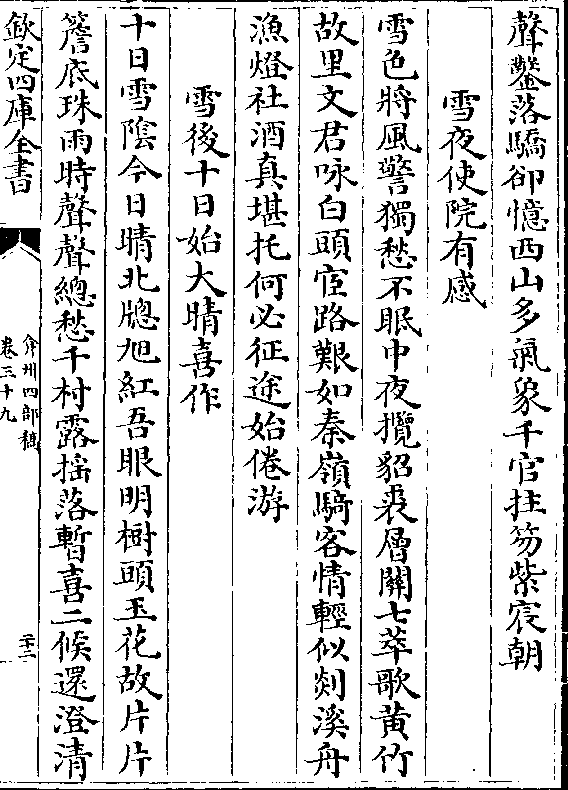 聲鑿落驕卻憶西山多氣象千官拄笏紫宸朝
雪夜使院有感
雪色將風警獨愁不眠中夜攬貂裘層關七萃歌黄竹
故里文君咏白頭宦路艱如秦嶺騎客情輕似剡溪舟
漁燈社酒真堪托何必征途始倦游
雪後十日始大晴喜作
十日雪陰今日晴北牕旭紅吾眼明樹頭玉花故片片
簷底珠雨時聲聲總愁千村露揺落暫喜二候還澄清
欽定四庫全書
弇州四部稿
卷三十九
二十二